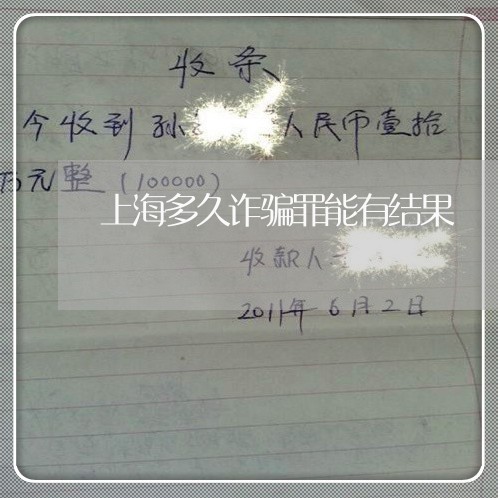 收条
今收到孙 人民币壹拾
万元整(100000)
上海多久诈骗罪能有结果
收款人
2011年6月2日